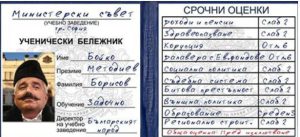 Министерски съвет
(УЧЕБНО ЗАВЕДЕНИЕ)
гр. София
УЧЕНИЧЕСКИ БЕЛЕЖНИК
Име Бойко
Презиме Методиев
Фамилия Борисов
Обучение Задочно
Директор на учебно заведение Българският народ
СРОЧНИ ОЦЕНКИ
Доходи и пенсии Слаб 2
Здравеопазване Слаб 2
Корупция Отл. 6
Далавера с Еврофондове Отл 6
Социална политика Слаб 2
Съдебна система Слаб 2
Битова престъпност Слаб 2
Външна политика Слаб 2
Образование Среден 3
Регионално строит. Слаб 2
Обща оценка: Пред изключване